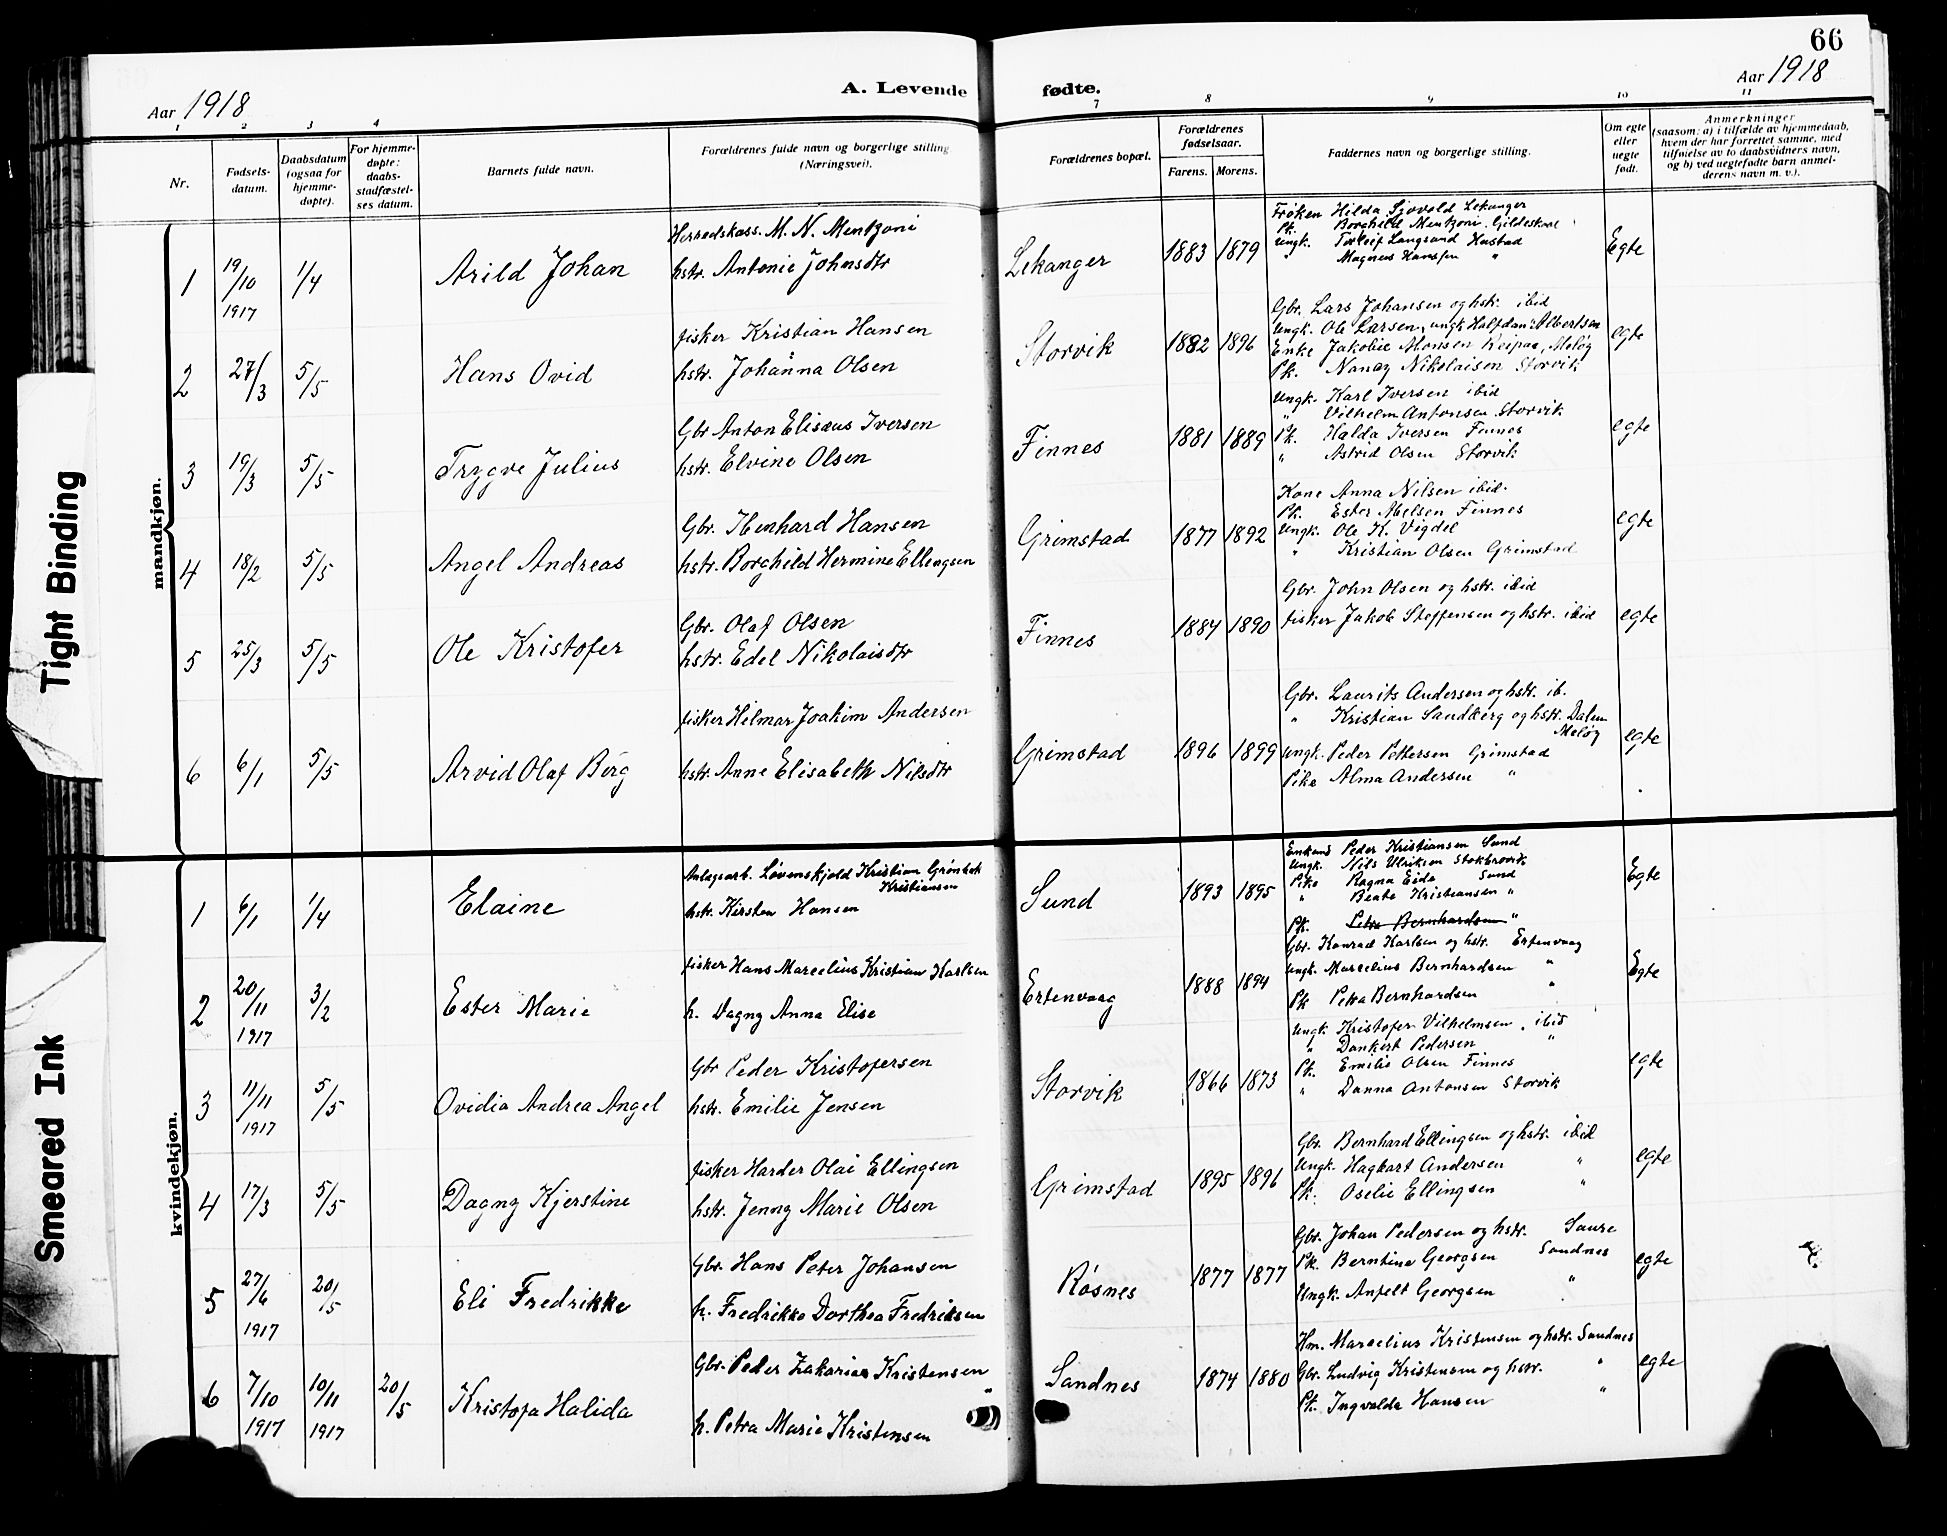 66
Aar 1918
A. Levende fødte.
Aar 1918
1 2 3 4 7 8 9 10 11
Nr.
Fødsels-
datum.
Daabsdatum
(ogsaa for
hjemme-
døpte).
For hjemme-
døpte:
daabs-
stadfæstel-
ses datum.
Barnets fulde navn.
Forældrenes fulde navn og borgerlige stilling
(Næringsvei).
Forældrenes bopæl.
Forældrenes
fødselsaar.
Farens. Morens.
Faddernes navn og borgerlige stilling.
Om egte
eller
uegte
født.
Anmerkninger
(saasom: a) i tilfælde av hjemmedaab,
hvem der har forrettet samme, med
tilføielse av to daabsvidners navn,
og b) ved uegtefødte barn anmel-
derens navn m. v.).
Tight Binding
Smeared Ink
mandkjøn.
1 19/10 1917 1/4 Arild Johan
Herredskass. M. N. Mentzoni
hstr. Antonie Johnsdtr
Lekanger 1883 1879
Frøken Hilda Sjøvold Lekanger
Pk. Borghild Mentzoni Gildeskaal
Ungk. Torleif Langsand Hustad
" Magnus Hanssen "
Egte
2 27/3 5/5 Hans Ovid
fisker Kristian Hansen
hstr. Johanna Olsen
Storvik 1882 1896
Gbr. Lars Johansen og hstr. ibid
Ungk. Ole Larsen, ungk Halfdan Albertsen
Enke Jakobie Monsen Reipaa, Meløy
Pk. Nancy Nikolaisen Storvik
egte
3 19/3 5/5 Trygve Julius
Gbr Anton Elisæus Iversen
hstr. Elvine Olsen
Finnes 1881 1889
Ungk. Karl Iversen ibid
" Vilhelm Antonsen Storvik
Pk. Halda Iversen Finnes
" Astrid Olsen Storvik
egte
4 18/2 5/5 Angel Andreas
Gbr. Ibenhard Hansen
hstr. Borghild Hermine Ellingsen
Grimstad 1877 1892
Kone Anna Nilsen ibid.
Pk. Ester Nielsen Finnes
Ungk. Ole K. Vigdel
" Kristian Olsen Grimstad
egte
5 25/3 5/5 Ole Kristofer
Gbr. Olaf Olsen
hstr. Edel Nikolaisdtr
Finnes 1884 1890
Gbr. John Olsen og hstr. ibid
fisker Jakob Steffensen og hstr. ibid
egte
6 6/1 5/5 Arvid Olaf Berg
fisker Hilmar Joakim Andersen
hstr. Anne Elisabeth Nilsdtr
Grimstad 1896 1899
Gbr. Laurits Andersen og hstr. ib.
" Kristian Sandberg og hstr. Dalen
Meløy
Ungk. Peder Pettersen Grimstad
Pike Alma Andersen "
egte
kvindekjøn.
1 6/1 1/4 Elaine
Anlægsarb. Løvenskjold Kristian Grønbek
Kristiansen
hstr. Kirsten Hansen
Sund 1893 1895
Enkem. Peder Kristiansen Sund
Ungk. Nils Ulriksen
Pike Ragna Eide Sund
" Beate Kristiansen "
Pk. Petra Bernhardsen "
Egte
2 20/11 1917 3/2 Ester Marie
fisker Hans Marcelius Kristian Karlsen
h. Dagny Anna Elise
Ertenvaag 1888 1894
Gbr. Konrad Karlsen og hstr. Ertenvaag
Ungk. Marcelius Bernhardsen "
Pk Petra Bernhardsen "
Egte
3 11/11 1917 5/5 Ovidia Andrea Angel
Gbr Peder Kristofersen
hstr. Emilie Jensen
Storvik 1866 1873
Ungk Kristofer Vilhelmsen, ibid
" Dankert Pedersen "
Pk. Emilie Olsen Finnes
" Danna Antonsen Storvik
egte
4 17/3 5/5 Dagny Kjerstine
fisker Harder Olai Ellingsen
hstr. Jenny Marie Olsen
Grimstad 1895 1896
Gbr. Bernhard Ellingsen og hstr. ibid
Ungk. Hagbart Andersen "
Pk. Oselie Ellingsen "
egte
5 27/6 1917 20/5 Eli Fredrikke
Gbr. Hans Peter Johansen
h. Fredrikke Dorthea Fredriksen
Røsnes 1877 1877
Gbr. Johan Pedersen og hstr. Saure
Pk. Berntine Georgsen Sandnes
Ungk. Anfelt Georgsen "
egte
6 7/10 1917 10/11 1917 20/5 Kristofa Halida
Gbr. Peder Zakarias Kristensen
h. Petra Marie Kristensen
Sandnes 1874 1880
Hm. Marcelius Kristensen og hstr. Sandnes
Gbr. Ludvig Kristensen og hstr. "
Pk. Ingvalda Hansen "
egte